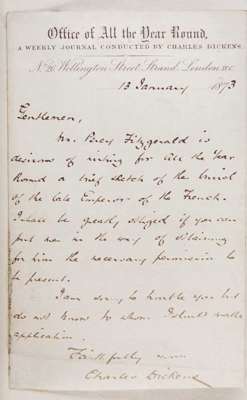 Office of All the Year Round,
A WEEKLY JOURNAL CONDUCTED BY CHARLES DICKENS.
No. 26 Wellington Street, Strand, London, W.C.
13 January 1873
Gentlemen,
Mr. Percy Fitzgerald is
desirous of writing for All the Year
Round a brief sketch of the burial
of the late Emperor of the French.
I shall be greatly obliged if you can
put me in the way of obtaining
for him the necessary permission to
be present.
I am sorry to trouble you but
do not know to whom I should make
application.
Faithfully yours
Charles Dickens